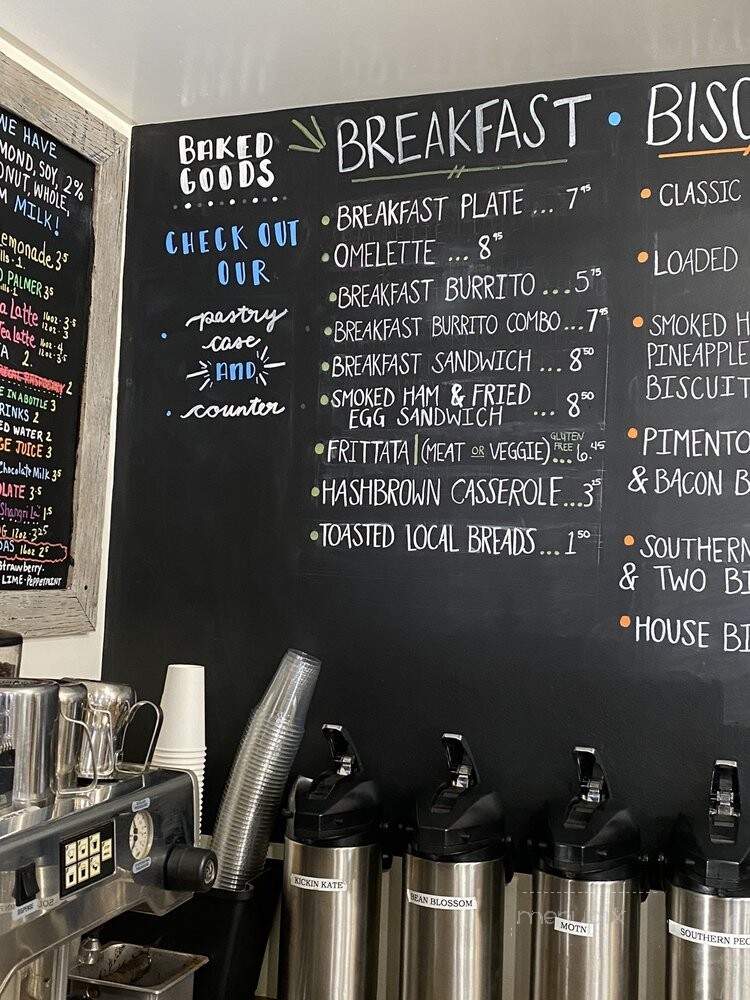 WE HAVE
MOND, SOY, 2%
NUT, WHOLE,
M MILK!
Lemonade 3.5
PALMER 3.5
Latte 16oz - 3.5
Tea Latte 16oz - 4
2.
2
E IN A BOTTLE 3
RINKS 2
ED WATER 2
GE JUICE 3
Chocolate Milk 3.5
OLATE 3.5
Shangri La 1.5
12oz - 3.25
DAS 16oz 2.5
Strawberry.
LIME - PEPPERMINT
BAKED
GOODS
CHECK OUT
OUR
pastry
case
AND
counter
BREAKFAST
• BREAKFAST PLATE ... 7.95
• OMELETTE ... 8.95
• BREAKFAST BURRITO ... 5.75
• BREAKFAST BURRITO COMBO ... 7.95
• BREAKFAST SANDWICH ... 8.50
• SMOKED HAM & FRIED
EGG SANDWICH ... 8.50
• FRITTATA | (MEAT OR VEGGIE) GLUTEN FREE ... 6.45
• HASHBROWN CASSEROLE ... 3.25
• TOASTED LOCAL BREADS ... 1.50
• BISC
• CLASSIC
• LOADED
• SMOKED H
PINEAPPLE
BISCUIT
• PIMENTO
& BACON B
• SOUTHERN
& TWO BI
• HOUSE BI
KICKIN KATE
BEAN BLOSSOM
MOTN
SOUTHERN PEC